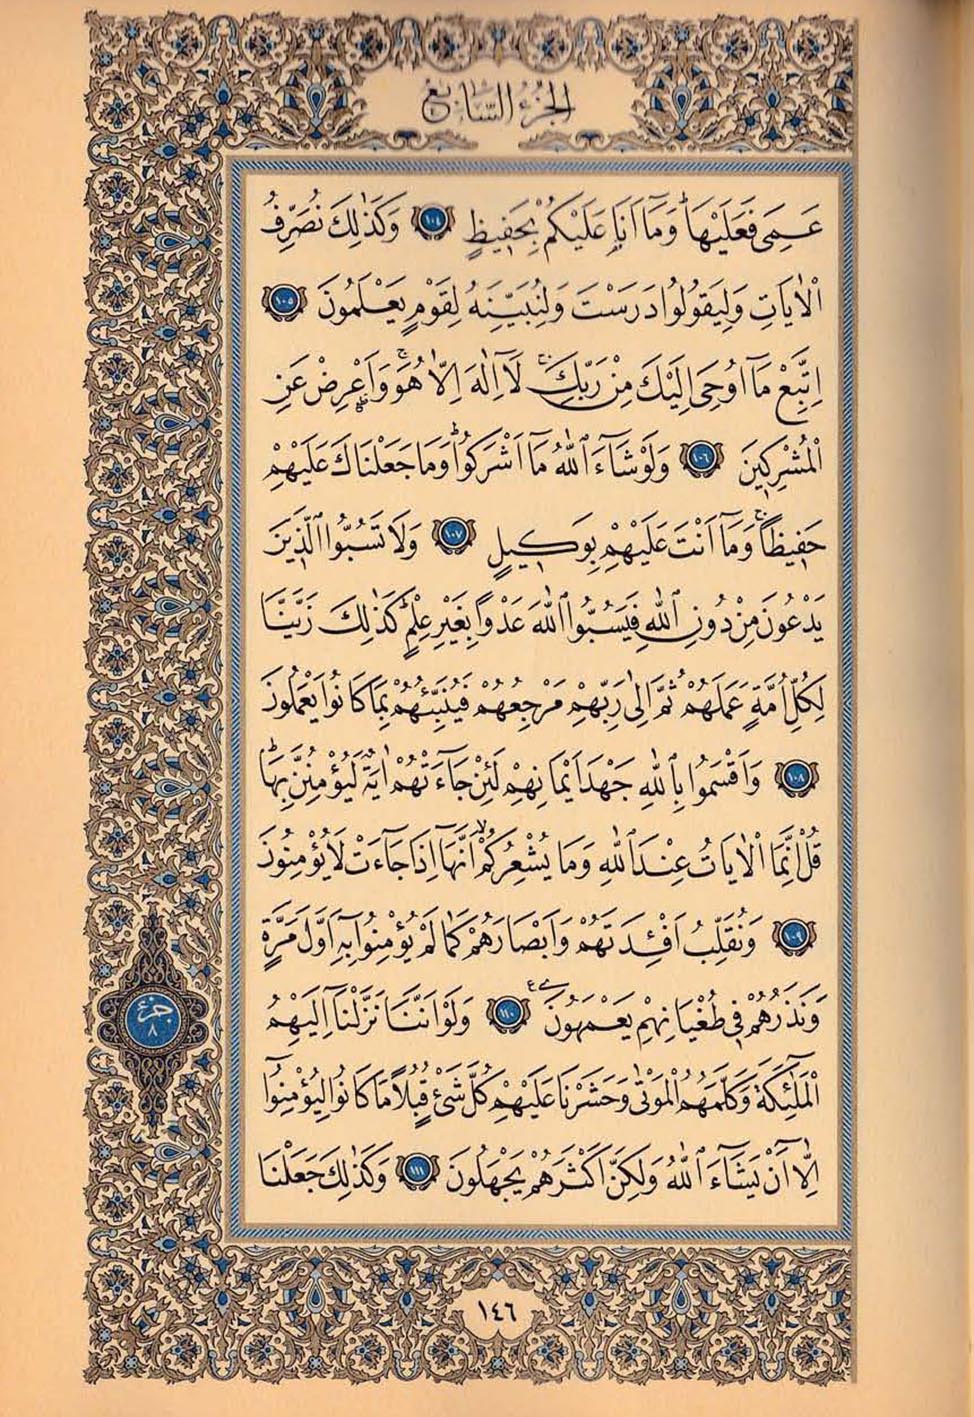 الجزء السابع
عَمِيَ فَعَلَيْهَاۜ وَمَٓا اَنَا۬ عَلَيْكُمْ بِحَف۪يظٍ ﴿١٠٤﴾ وَكَذٰلِكَ نُصَرِّفُ
الْاٰيَاتِ وَلِيَقُولُوا دَرَسْتَ وَلِنُبَيِّنَهُ لِقَوْمٍ يَعْلَمُونَ ﴿١٠٥﴾
اِتَّبِعْ مَٓا اُو۫حِيَ اِلَيْكَ مِنْ رَبِّكَۚ لَٓا اِلٰهَ اِلَّا هُوَۚ وَاَعْرِضْ عَنِ
الْمُشْرِك۪ينَ ﴿١٠٦﴾ وَلَوْ شَٓاءَ اللّٰهُ مَٓا اَشْرَكُواۜ وَمَا جَعَلْنَاكَ عَلَيْهِمْ
حَف۪يظًاۚ وَمَٓا اَنْتَ عَلَيْهِمْ بِوَك۪يلٍ ﴿١٠٧﴾ وَلَا تَسُبُّوا الَّذ۪ينَ
يَدْعُونَ مِنْ دُونِ اللّٰهِ فَيَسُبُّوا اللّٰهَ عَدْوًا بِغَيْرِ عِلْمٍۜ كَذٰلِكَ زَيَّنَّا
لِكُلِّ اُمَّةٍ عَمَلَهُمْ ثُمَّ اِلٰى رَبِّهِمْ مَرْجِعُهُمْ فَيُنَبِّئُهُمْ بِمَا كَانُوا يَعْمَلُونَ
﴿١٠٨﴾ وَاَقْسَمُوا بِاللّٰهِ جَهْدَ اَيْمَانِهِمْ لَئِنْ جَٓاءَتْهُمْ اٰيَةٌ لَيُؤْمِنُنَّ بِهَاۜ
قُلْ اِنَّمَا الْاٰيَاتُ عِنْدَ اللّٰهِ وَمَا يُشْعِرُكُمْۙ اَنَّهَٓا اِذَا جَٓاءَتْ لَا يُؤْمِنُونَ
﴿١٠٩﴾ وَنُقَلِّبُ اَفْـِٔدَتَهُمْ وَاَبْصَارَهُمْ كَمَا لَمْ يُؤْمِنُوا بِه۪ٓ اَوَّلَ مَرَّةٍ
وَنَذَرُهُمْ ف۪ي طُغْيَانِهِمْ يَعْمَهُونَ ﴿١١٠﴾ وَلَوْ اَنَّـنَا نَزَّلْنَٓا اِلَيْهِمُ
الْمَلٰٓئِكَةَ وَكَلَّمَهُمُ الْمَوْتٰى وَحَشَرْنَا عَلَيْهِمْ كُلَّ شَيْءٍ قُبُلًا مَا كَانُوا لِيُؤْمِنُٓوا
اِلَّٓا اَنْ يَشَٓاءَ اللّٰهُ وَلٰكِنَّ اَكْثَرَهُمْ يَجْهَلُونَ ﴿١١١﴾ وَكَذٰلِكَ جَعَلْنَا
جزء
٨
١٤٦